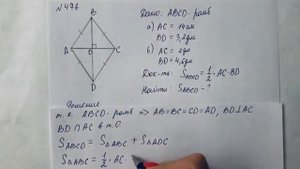 N 476
B
A
O
C
D
Дано: ABCD-ромб
а) AC = 14см
BD = 3,2дм
б) AC = 2дм
BD = 4,6дм
Док-ть: S_ABCD = 1/2 · AC · BD
Найти: S_ABCD - ?
Решение
т.к. ABCD-ромб => AB=BC=CD=AD, BD⊥AC
BD ∩ AC в т.О
S_ABCD = S_△ABC + S_△ADC
S_△ABC = 1/2 · AC